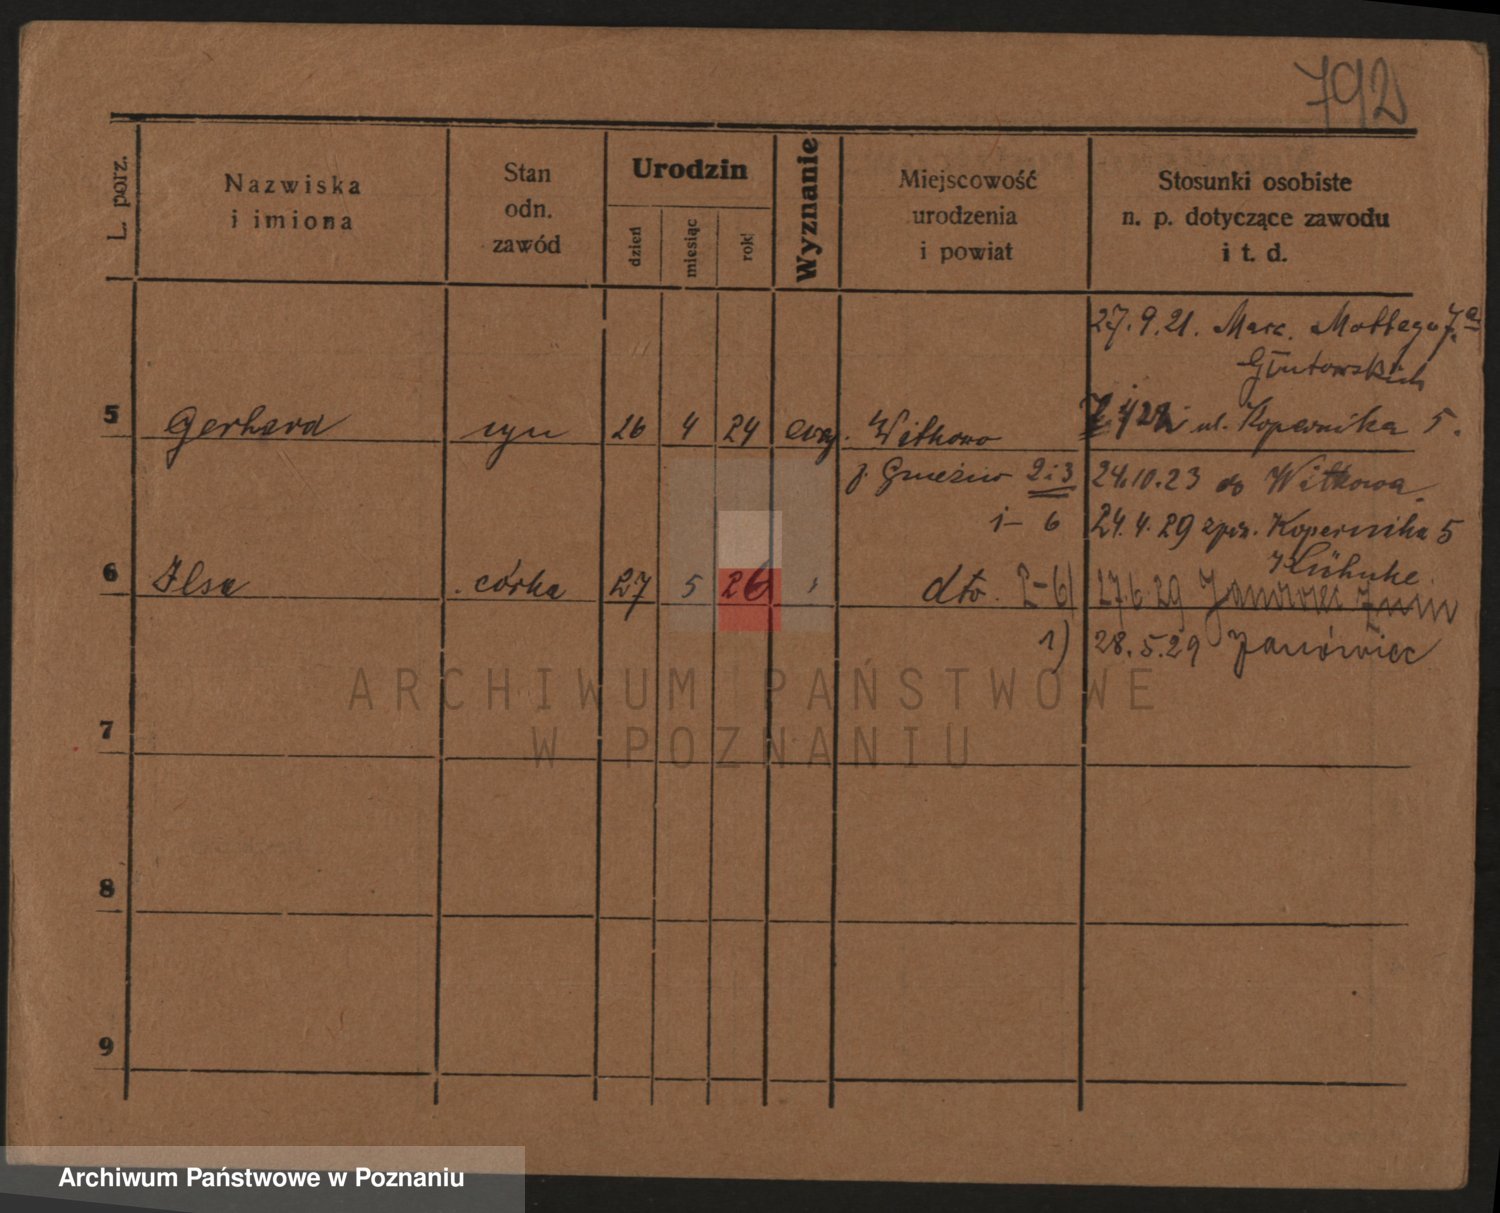 792
L. porz.
Nazwiska
i imiona
Stan
odn.
zawód
Urodzin
dzień
miesiąc
rok
Wyznanie
Miejscowość
urodzenia
i powiat
Stosunki osobiste
n. p. dotyczące zawodu
i t. d.
27. 9. 21. Marc. Mottego 7a
5 Gerhard syn 26 4 24 ewg. Witkowo ul. Kopernika 5.
p. Gnieźno 2 i 3 24.10.23 do Witkowa.
i – 6 24. 4. 29 Kopernika 5
Kühnke.
6 Ilsa córka 27 5 26 dto. 2-6) 27.6.29 Janowiec Żnin
1) 28.5.29 Janówiec
7
8
9
ARCHIWUM PAŃSTWOWE
W POZNANIU
Archiwum Państwowe w Poznaniu